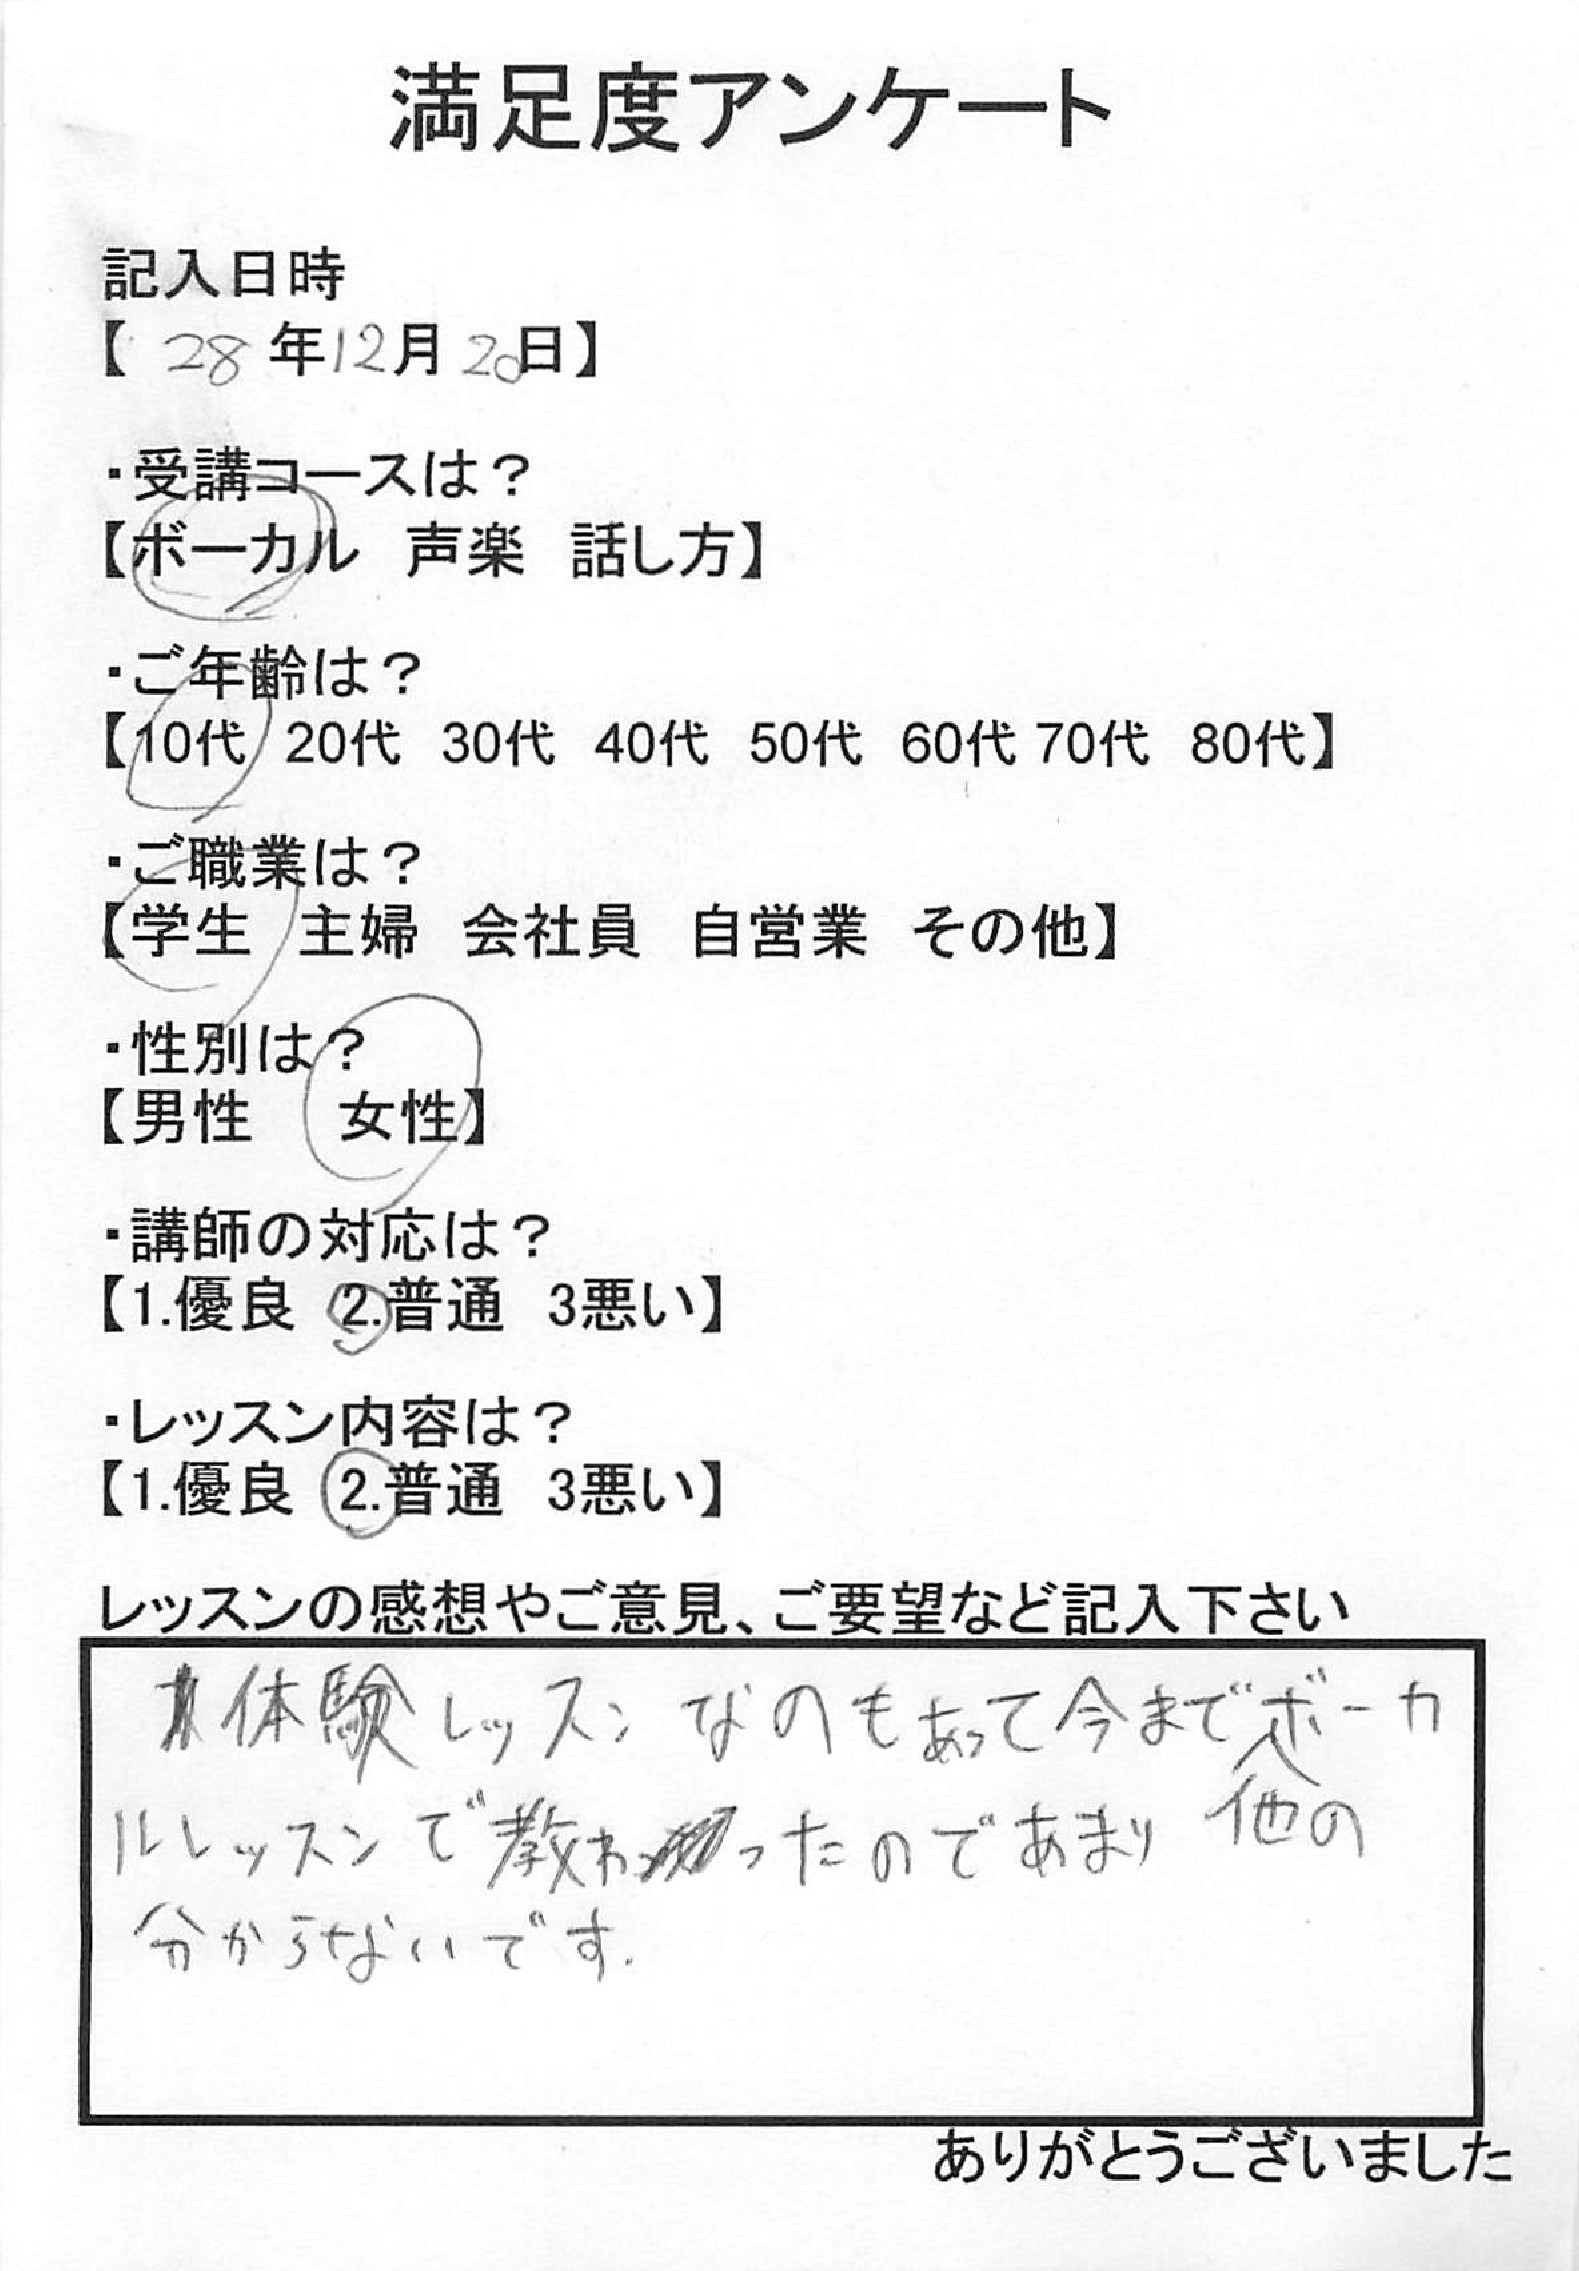 満足度アンケート
記入日時
【 28年12月20日】
・受講コースは？
【ボーカル 声楽 話し方】
・ご年齢は？
【10代 20代 30代 40代 50代 60代 70代 80代】
・ご職業は？
【学生 主婦 会社員 自営業 その他】
・性別は？
【男性 女性】
・講師の対応は？
【1.優良 2.普通 3悪い】
・レッスン内容は？
【1.優良 2.普通 3悪い】
レッスンの感想やご意見、ご要望など記入下さい
体験レッスンなのもあって今まで他のボーカ
ルレッスンで教わったのであまり
分からないです.
ありがとうございました